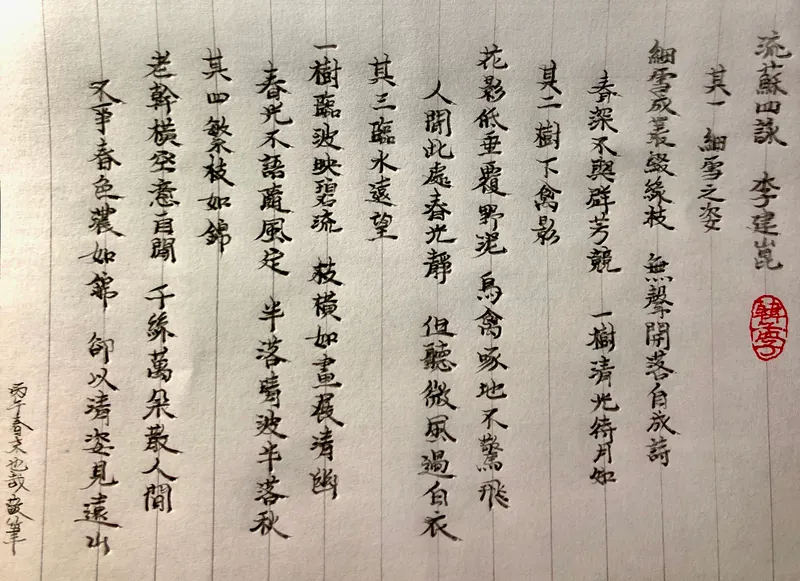 流蘇四詠　李建崑
其一 細雪之姿
細雪成叢綴綠枝　無聲開落自成詩
春深不與群芳競　一樹清光待月知
其二 樹下禽影
花影低垂覆野泥　鳥禽啄地不驚飛
人間此處春光靜　但聽微風過白衣
其三 臨水遠望
一樹臨波映碧流　枝橫如畫展清幽
春光不語隨風定　半落晴波半落秋
其四 繁枝如錦
老幹橫空意自閒　千絲萬朵散人間
不爭春色濃如錦　卻以清姿見遠山
丙午春末也哉敬筆